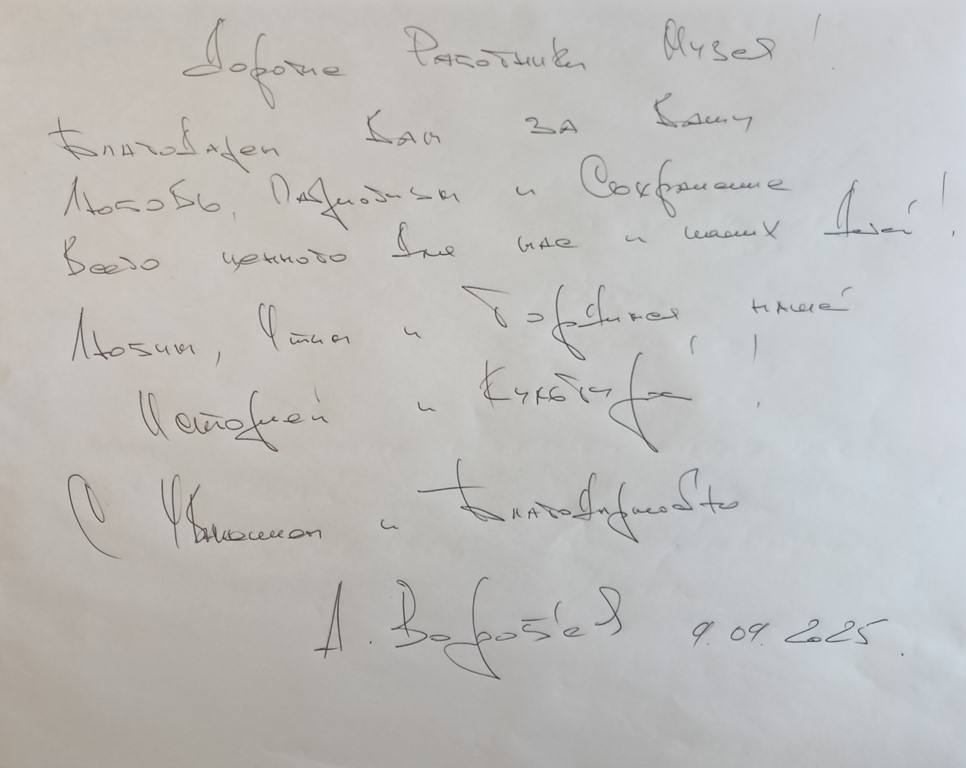 Дорогие Работники Музея!
Благодарен Вам за Вашу
Любовь, Патриотизм и Сохранение
Всего ценного для нас и наших Детей!
Любим, Чтим и Гордимся нашей
Историей и Культурой!
С Уважением и Благодарностью
А. Воробьёв 9.09.2025.